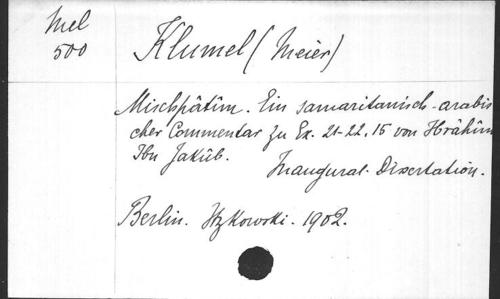 Mel
500
Klumel (Meier)
Mischpâtîm. Ein samaritanisch-arabis
cher Commentar zu Ex. 21-22, 15 von Ibrâhîm
Ibn Jakûb.
Inaugural-Dissertation.
Berlin. Itzkowski. 1902.